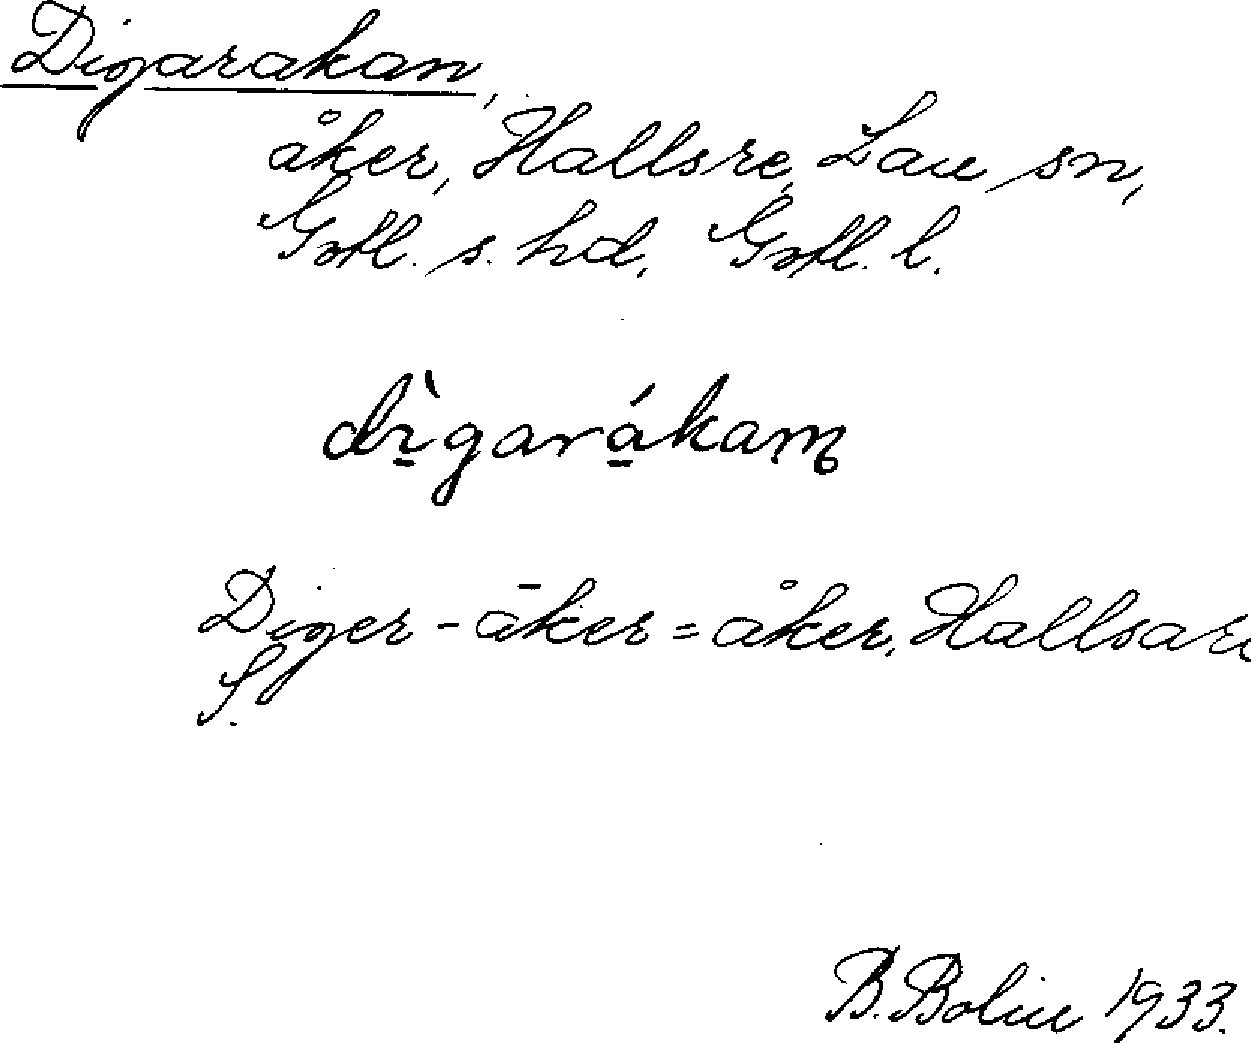 Digarakan,
åker, Hallsre, Lau sn,
Gotl. s. hd, Gotl. l.
dìgarákam
Diger - āker = åker, Hallsare
S.
B. Bolin 1933.